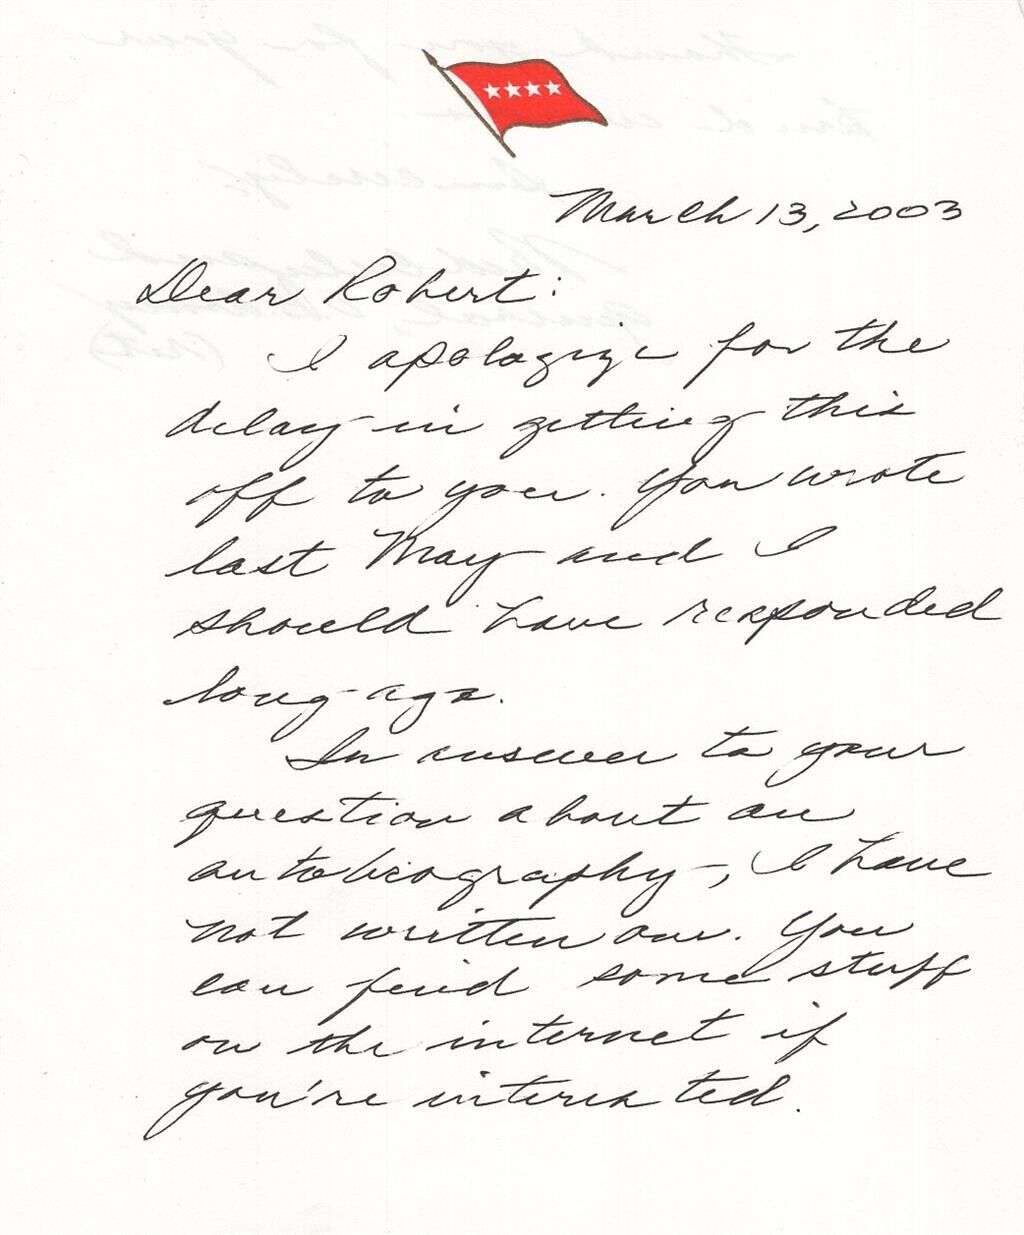 March 13, 2003
Dear Robert:
I apologize for the
delay in getting this
off to you. You wrote
last May and I
should have responded
long ago.
In answer to your
question about an
autobiography, I have
not written one. You
can find some stuff
on the internet if
you're interested.